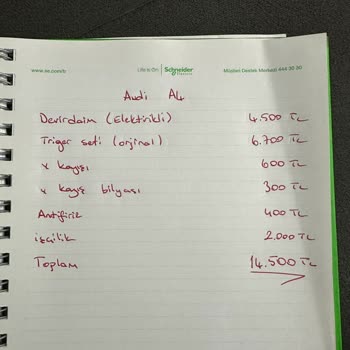 www.se.com/tr
Life Is On | Schneider Electric
Müşteri Destek Merkezi 444 30 30
Audi A4
Devirdaim (Elektirikli) 4.500 TL
Triger seti (orjinal) 6.700 TL
V kayışı 600 TL
V kayış bilyası 300 TL
Antifiriz 400 TL
işçilik 2.000 TL
Toplam 14.500 TL